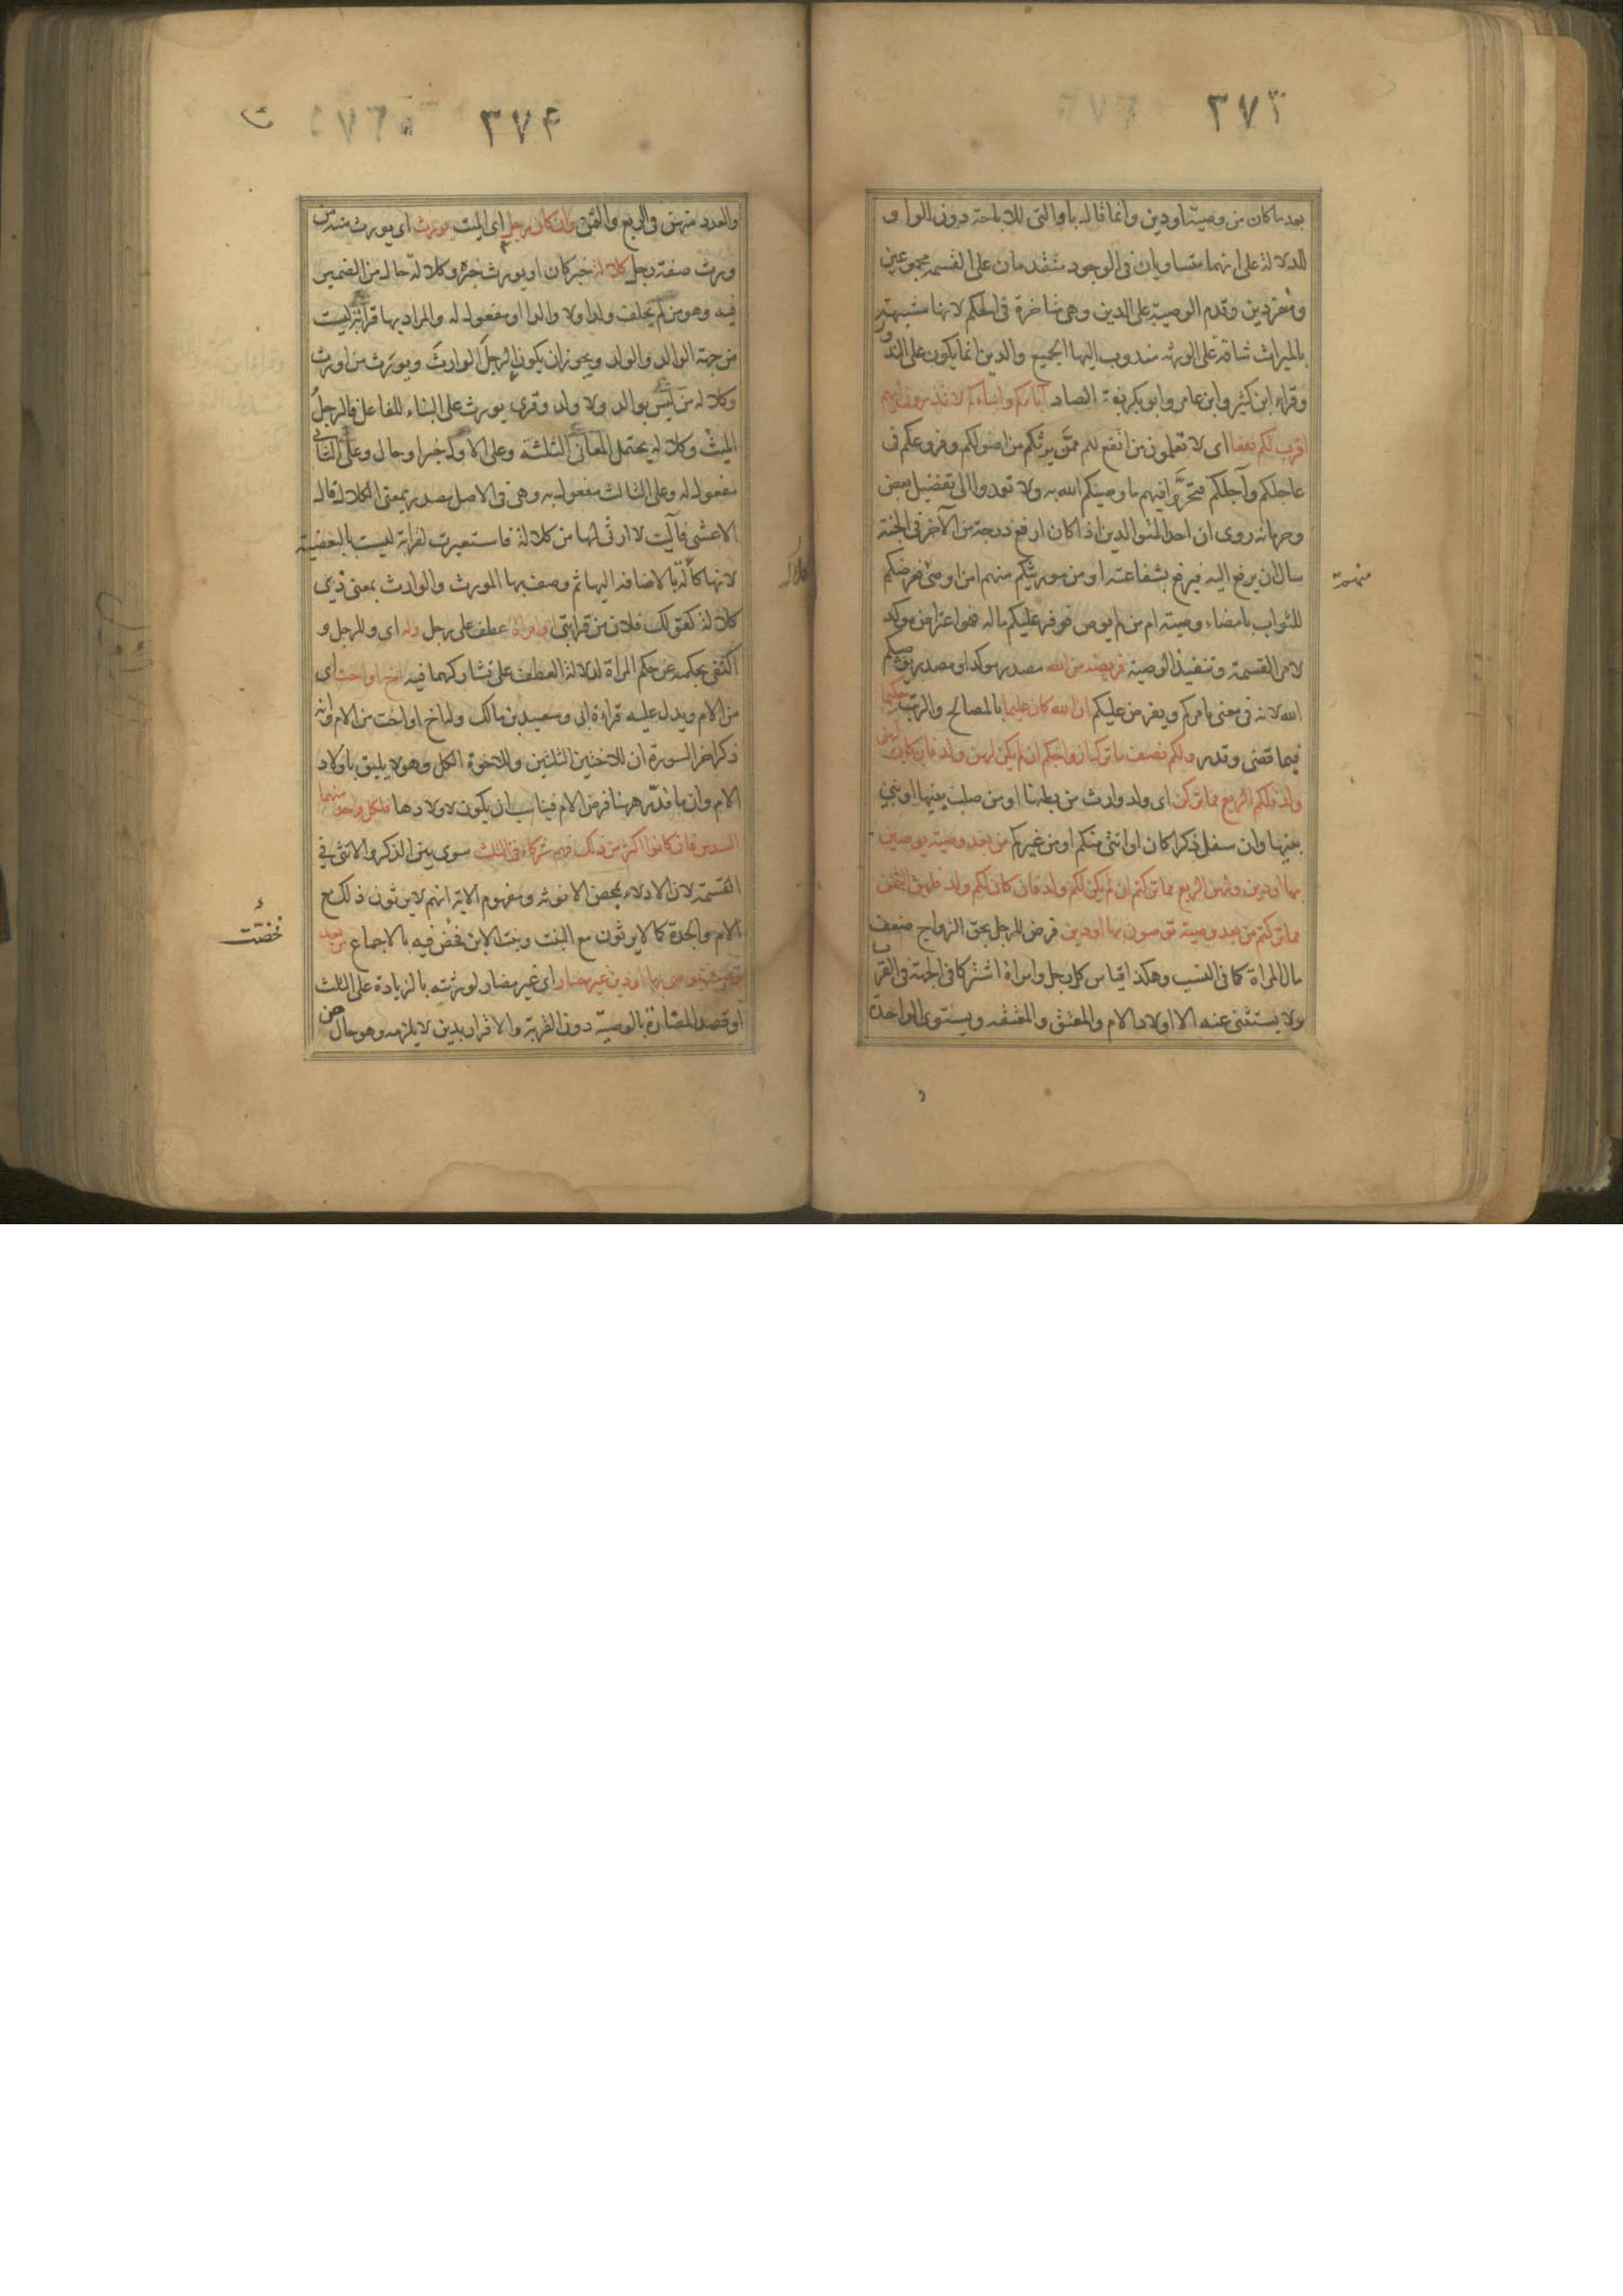 ٣٧٣
بعد ما كان من وصية او دين وانما قال باو التى للاباحة دون الواو
للدلالة على انهما متساويان فى الوجوب متقدمان على القسمة مجموعين
ومنفردين وقدم الوصية على الدين وهى متاخرة فى الحكم لانها مشبهة
بالميراث شاقة على الورثة مندوب اليها الجميع والدين انما يكون على الندور
وقراء ابن كثير وابن عامر وابو بكر بفتح الصاد آباؤكم وابناءكم لا تدرون ايهم
اقرب لكم نفعا اى لا تعلمون من انفع لكم ممن يرثكم من اصولكم وفروعكم فى
عاجلكم وآجلكم فتحروا فيهم ما وصيكم الله به ولا تعمدوا الى تفضيل بعض
وحرمانه روى ان احد المتوالدين اذا كان ارفع درجة من الآخر فى الجنة
سال ان يرفع اليه فيرفع بشفاعته او من مورثيكم منهم امن اوصى فعرضكم
منهم
للثواب بامضاء وصيته ام من لم يوص فوفر عليكم ماله فهو اعتراض موكد
لامر القسمة وتنفيذ الوصية فريضة من الله مصدر موكد او مصدر يوصيكم
الله لانه فى معنى يامركم ويفرض عليكم ان الله كان عليما بالمصالح والرتب حكيما
فيما قضى وقدر ولكم نصف ما ترك ازواجكم ان لم يكن لهن ولد فان كان لهن
ولد فلكم الربع مما تركن اى ولد وارث من بطنها او من صلب بنيها او بنى
بنيها وان سفل ذكرا كان او انثى منكم او من غيركم من بعد وصية يوصين
بها او دين ولهن الربع مما تركتم ان لم يكن لكم ولد فان كان لكم ولد فلهن الثمن
مما تركتم من بعد وصية توصون بها او دين فرض للرجل بحق الزواج ضعف
ما للمراة كما فى النسب وهكذا قياس كل رجل وامراة اشتركا فى الجهة والقرب
ولا يستثنى عنه الا اولاد الام والمعتق والمعتقه ويستوى الواحدة
٣٧۴
والعدد منهن فى الربع والثمن وان كان رجل اى الميت يورث اى يورث منه من
ورث صفة رجل كلالة خبر كان او يورث خبره وكلالة حال من الضمير
فيه وهو من لم يخلف ولدا ولا والدا او مفعول له والمراد بها قرابة ليست
من جهة الوالد والولد ويجوز ان يكون الرجل الوارث ويورث من اورث
وكلالة من ليس بوالد ولا ولد وقرى يورث على البناء للفاعل فالرجل
الميت وكلالة يحتمل المعانى الثلثة وعلى الاول خبر او حال وعلى الثانى
مفعول له وعلى الثالث مفعول به وهى فى الاصل مصدر بمعنى الكلال قال
الاعشى فآليت لا ارثى لها من كلالة فاستعيرت لقرابة ليست بالبعضية
لانها كالة بالاضافة اليها ثم وصف بها المورث والوارث بمعنى ذى
كلالة كقولك فلان من قرابتى او امراة عطف على رجل وله اى وللرجل و
اكتفى بحكمه عن حكم المراة لدلالة العطف على تشاركهما فيه اخ او اخت اى
من الام ويدل عليه قراءة ابى وسعيد بن مالك وله اخ او اخت من الام وانه
ذكر اخر السورة ان للاختين الثلثين وللاخوة الكل وهو لا يليق باولاد
الام وان ما قدر ههنا فرض الام فيناسب ان يكون لاولادها فلكل واحد منهما
السدس فان كانوا اكثر من ذلك فهم شركاء فى الثلث سوى بين الذكر والانثى فى
القسمة لان الادلاء بمحض الانوثة ومفهوم الاية انهم لا يرثون ذلك مع
الام والجدة كما لا يرثون مع البنت وبنت الابن فخص فيه بالاجماع من بعد
خُصّت
وصية يوصى بها او دين غير مضار اى غير مضار لورثته بالزيادة على الثلث
او قصد المضارة بالوصية دون القربة والاقرار بدين لا يلزمه وهو حال من